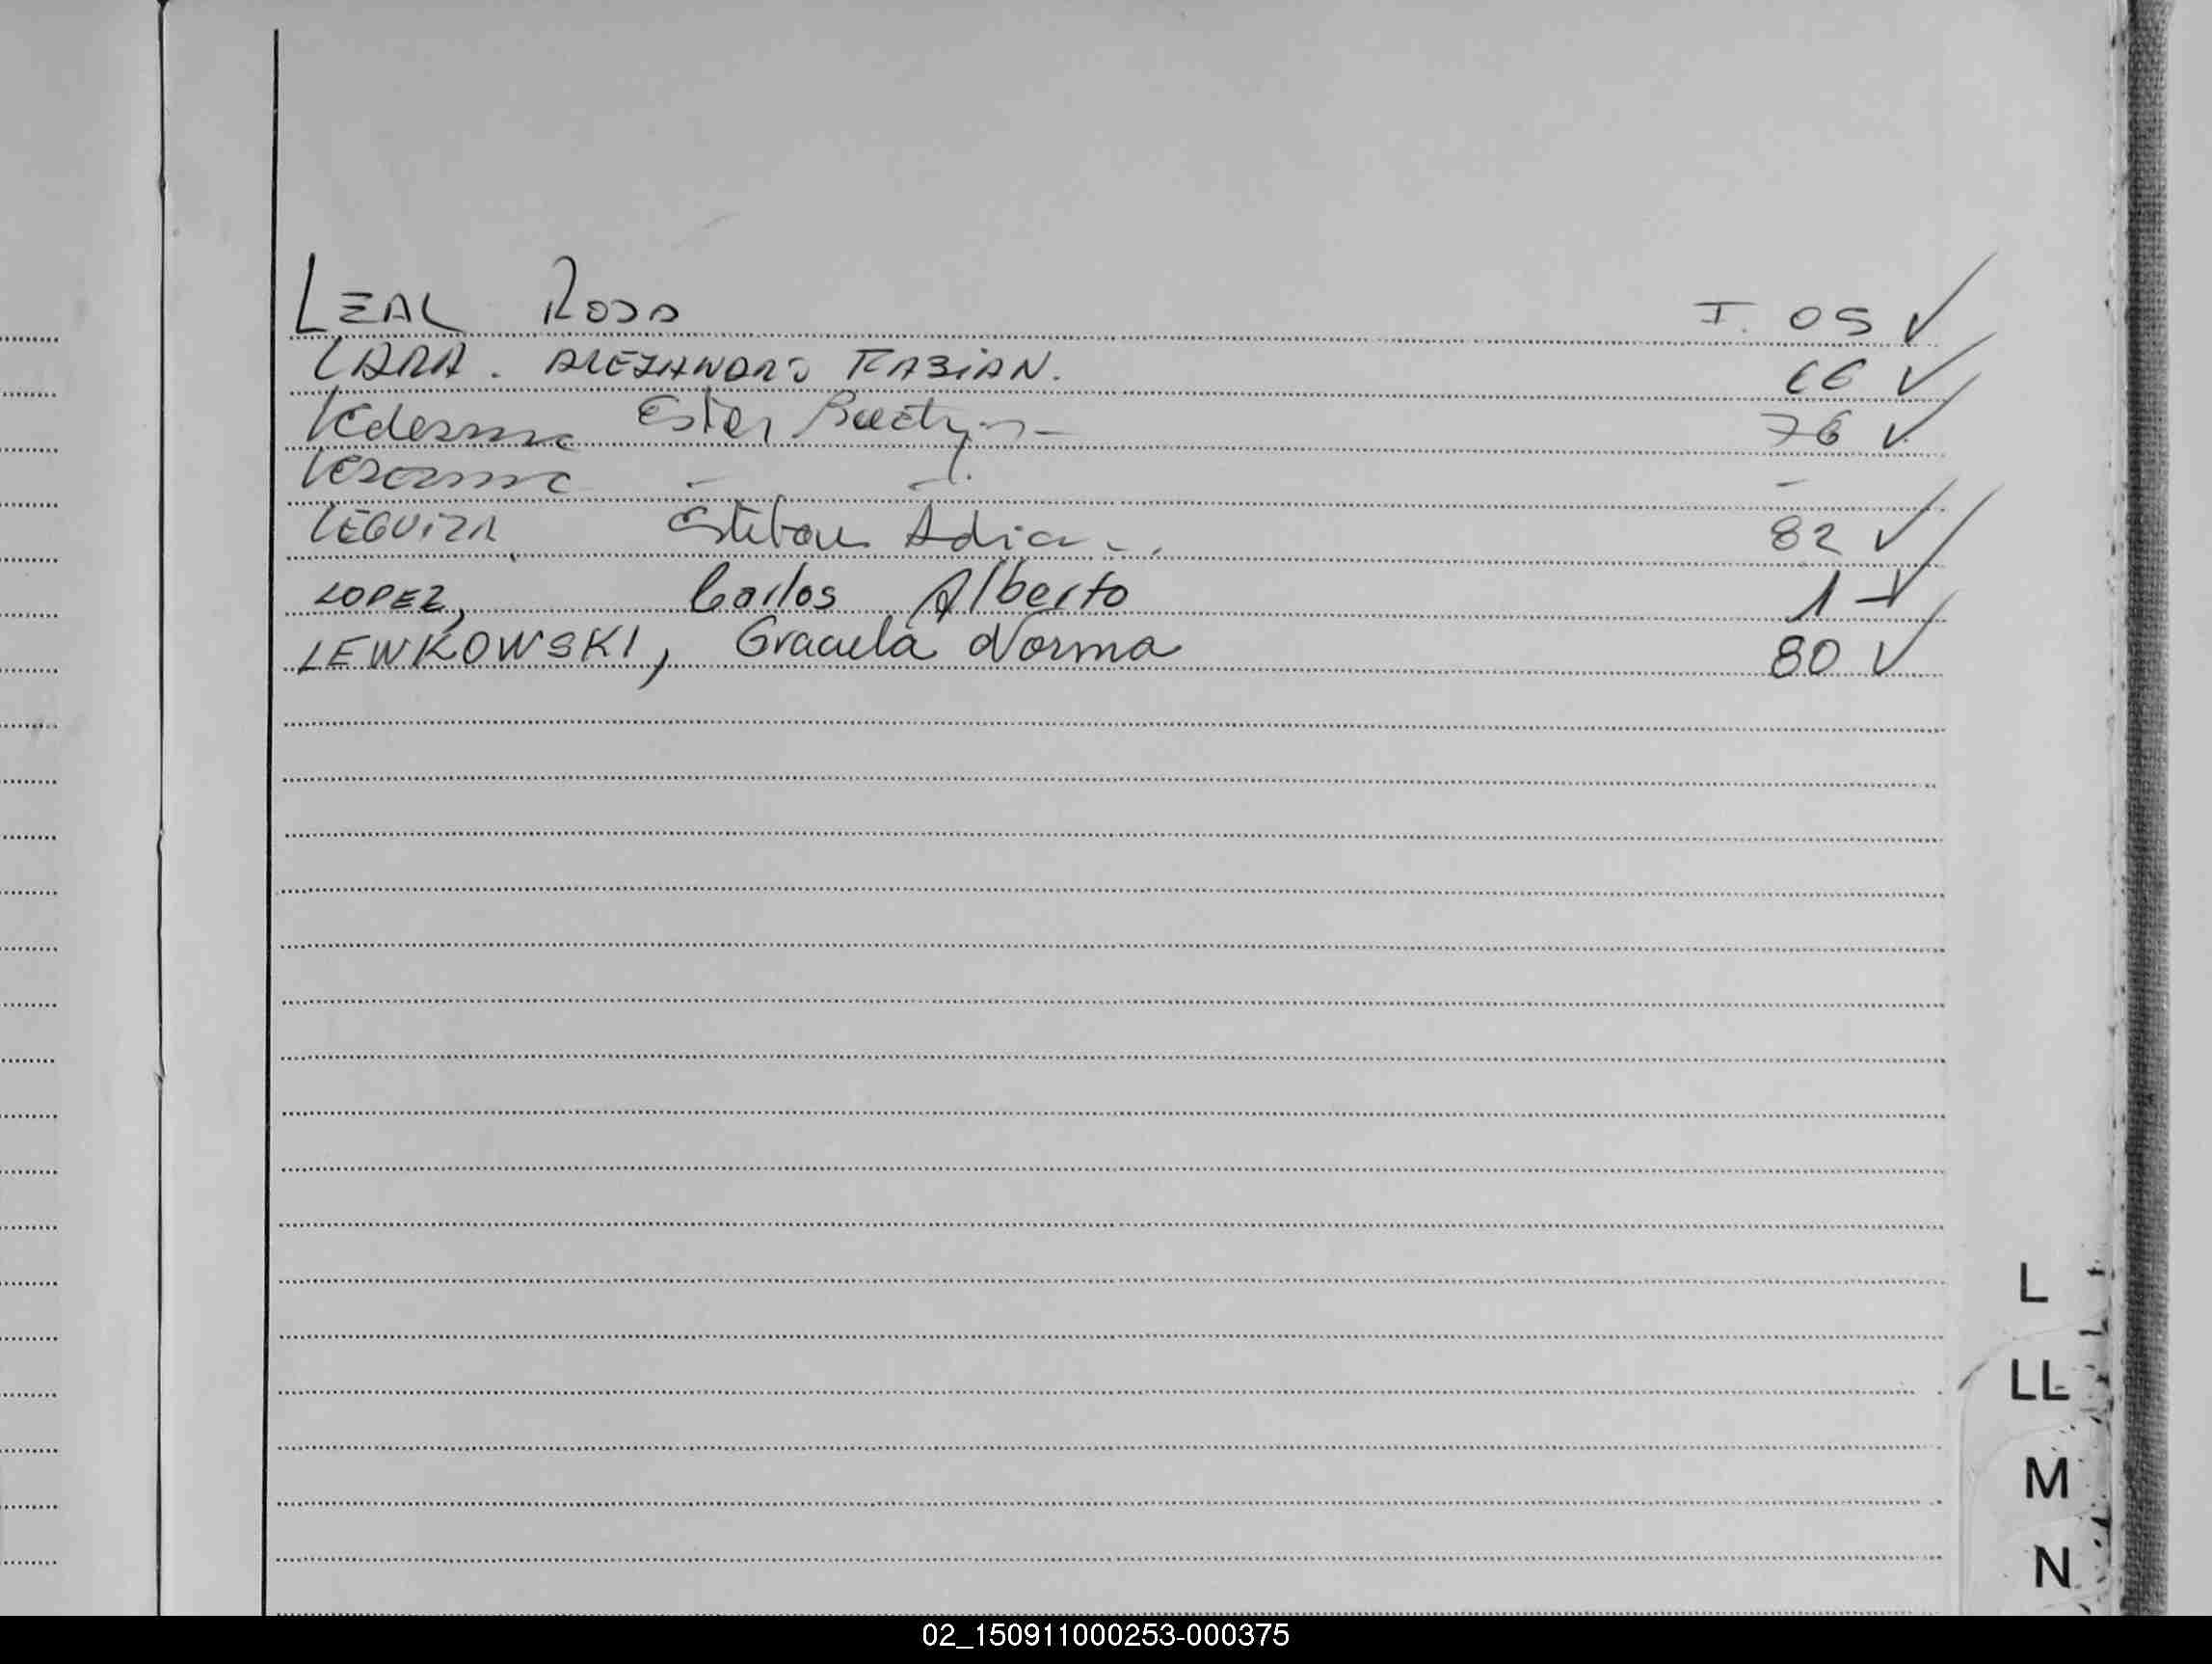 LEAL Rosa T. 05 ✓
LARA. ALEJANDRO FABIAN. 66 ✓
Ledesma Ester 76 ✓
Ledesma - - -
LEGUIZA Esteban Adia 82 ✓
LOPEZ, Carlos Alberto 1 ✓
LEWKOWSKI, Graciela Norma 80 ✓
L
LL
M
N
02_150911000253-000375